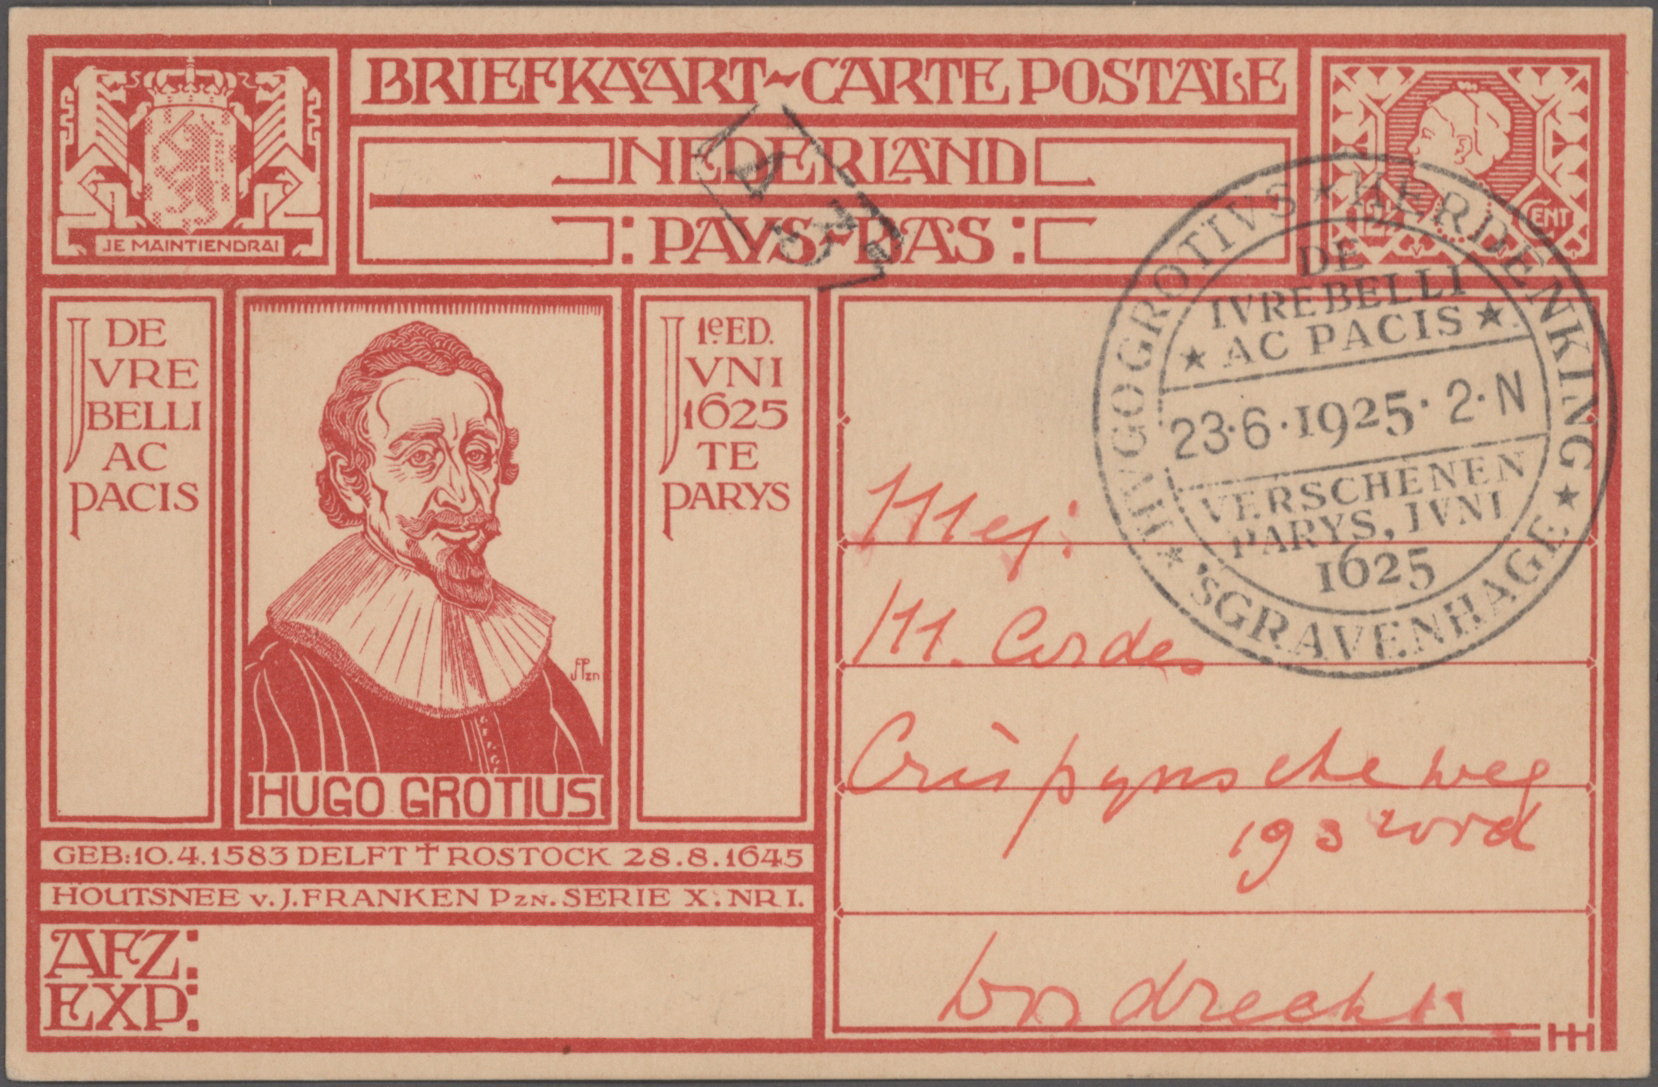 BRIEFKAART~CARTE POSTALE
NEDERLAND
:PAYS-BAS:
JE MAINTIENDRAI
CENT
DE
JVRE
BELLI
AC
PACIS
HUGO GROTIUS
JPzn
1e ED.
JVNI
1625
TE
PARYS
GEB:10.4.1583 DELFT † ROSTOCK 28.8.1645
HOUTSNEE v. J. FRANKEN Pzn. SERIE X: NR I.
AFZ:
EXP:
HVGO GROTIVS ★ HERDENKING ★ 'SGRAVENHAGE ★
DE
IVRE BELLI
★ AC PACIS ★
23·6·1925·2·N
VERSCHENEN
PARYS, JVNI
1625
Mej:
M. Cordes
Crispijnsche weg
193 rood
Dordrecht.
HH